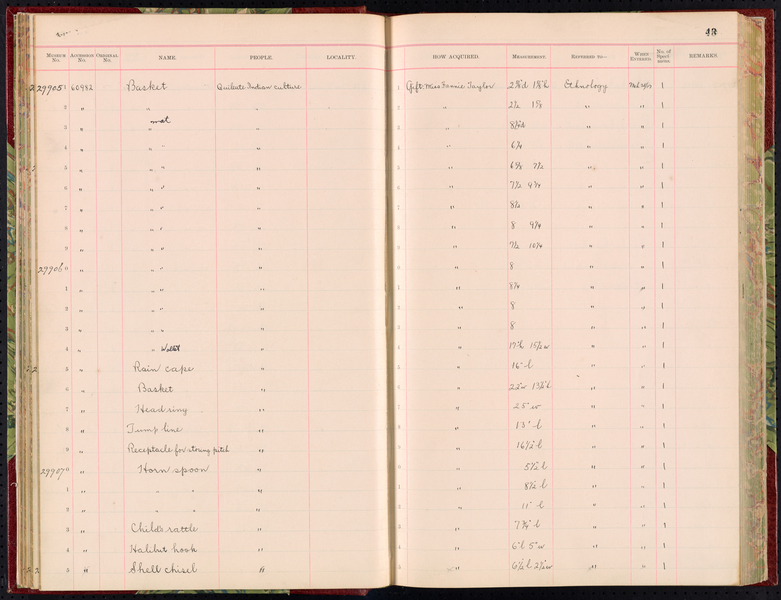 MUSEUM No. ACCESSION No. ORIGINAL No. NAME. PEOPLE. LOCALITY. HOW ACQUIRED. MEASUREMENT. REFERRED TO— WHEN ENTERED. No. of Specimens. REMARKS.
299051 60982 Basket Quileute Indian culture 1 Gift Miss Fannie Taylor Ethnology 1
2 " " " " " " 1
3 " " mat " " " " 1
4 " " " " " 6¾ " " 1
5 " " " " " " " 1
6 " " " " " 7½ 9¾ " " 1
7 " " " " " 8½ " " 1
8 " " " " " 8 9¾ " " 1
9 " " " " " 7½ 10¼ " " 1
299060 " " " " " 8 " " 1
1 " " " " " 8¼ " " 1
2 " " " " " 8 " " 1
3 " " " " " 8 " " 1
4 " " Wallet " " 17"l 15½ w " " 1
5 " Rain cape " " 16" l " " 1
6 " Basket " " " " 1
7 " Headring " " 25" w " " 1
8 " Tump line " " 13" l " " 1
9 " Receptacle for storing pitch " " 16½" l " " 1
299070 " Horn spoon " " 5½ l " " 1
1 " " " " " 8½ l " " 1
2 " " " " " 11" l " " 1
3 " Child's rattle " " 7¾" l " " 1
4 " Halibut hook " " 6" l 5" w " " 1
5 " Shell chisel " " 6½ l 2½ w " " 1